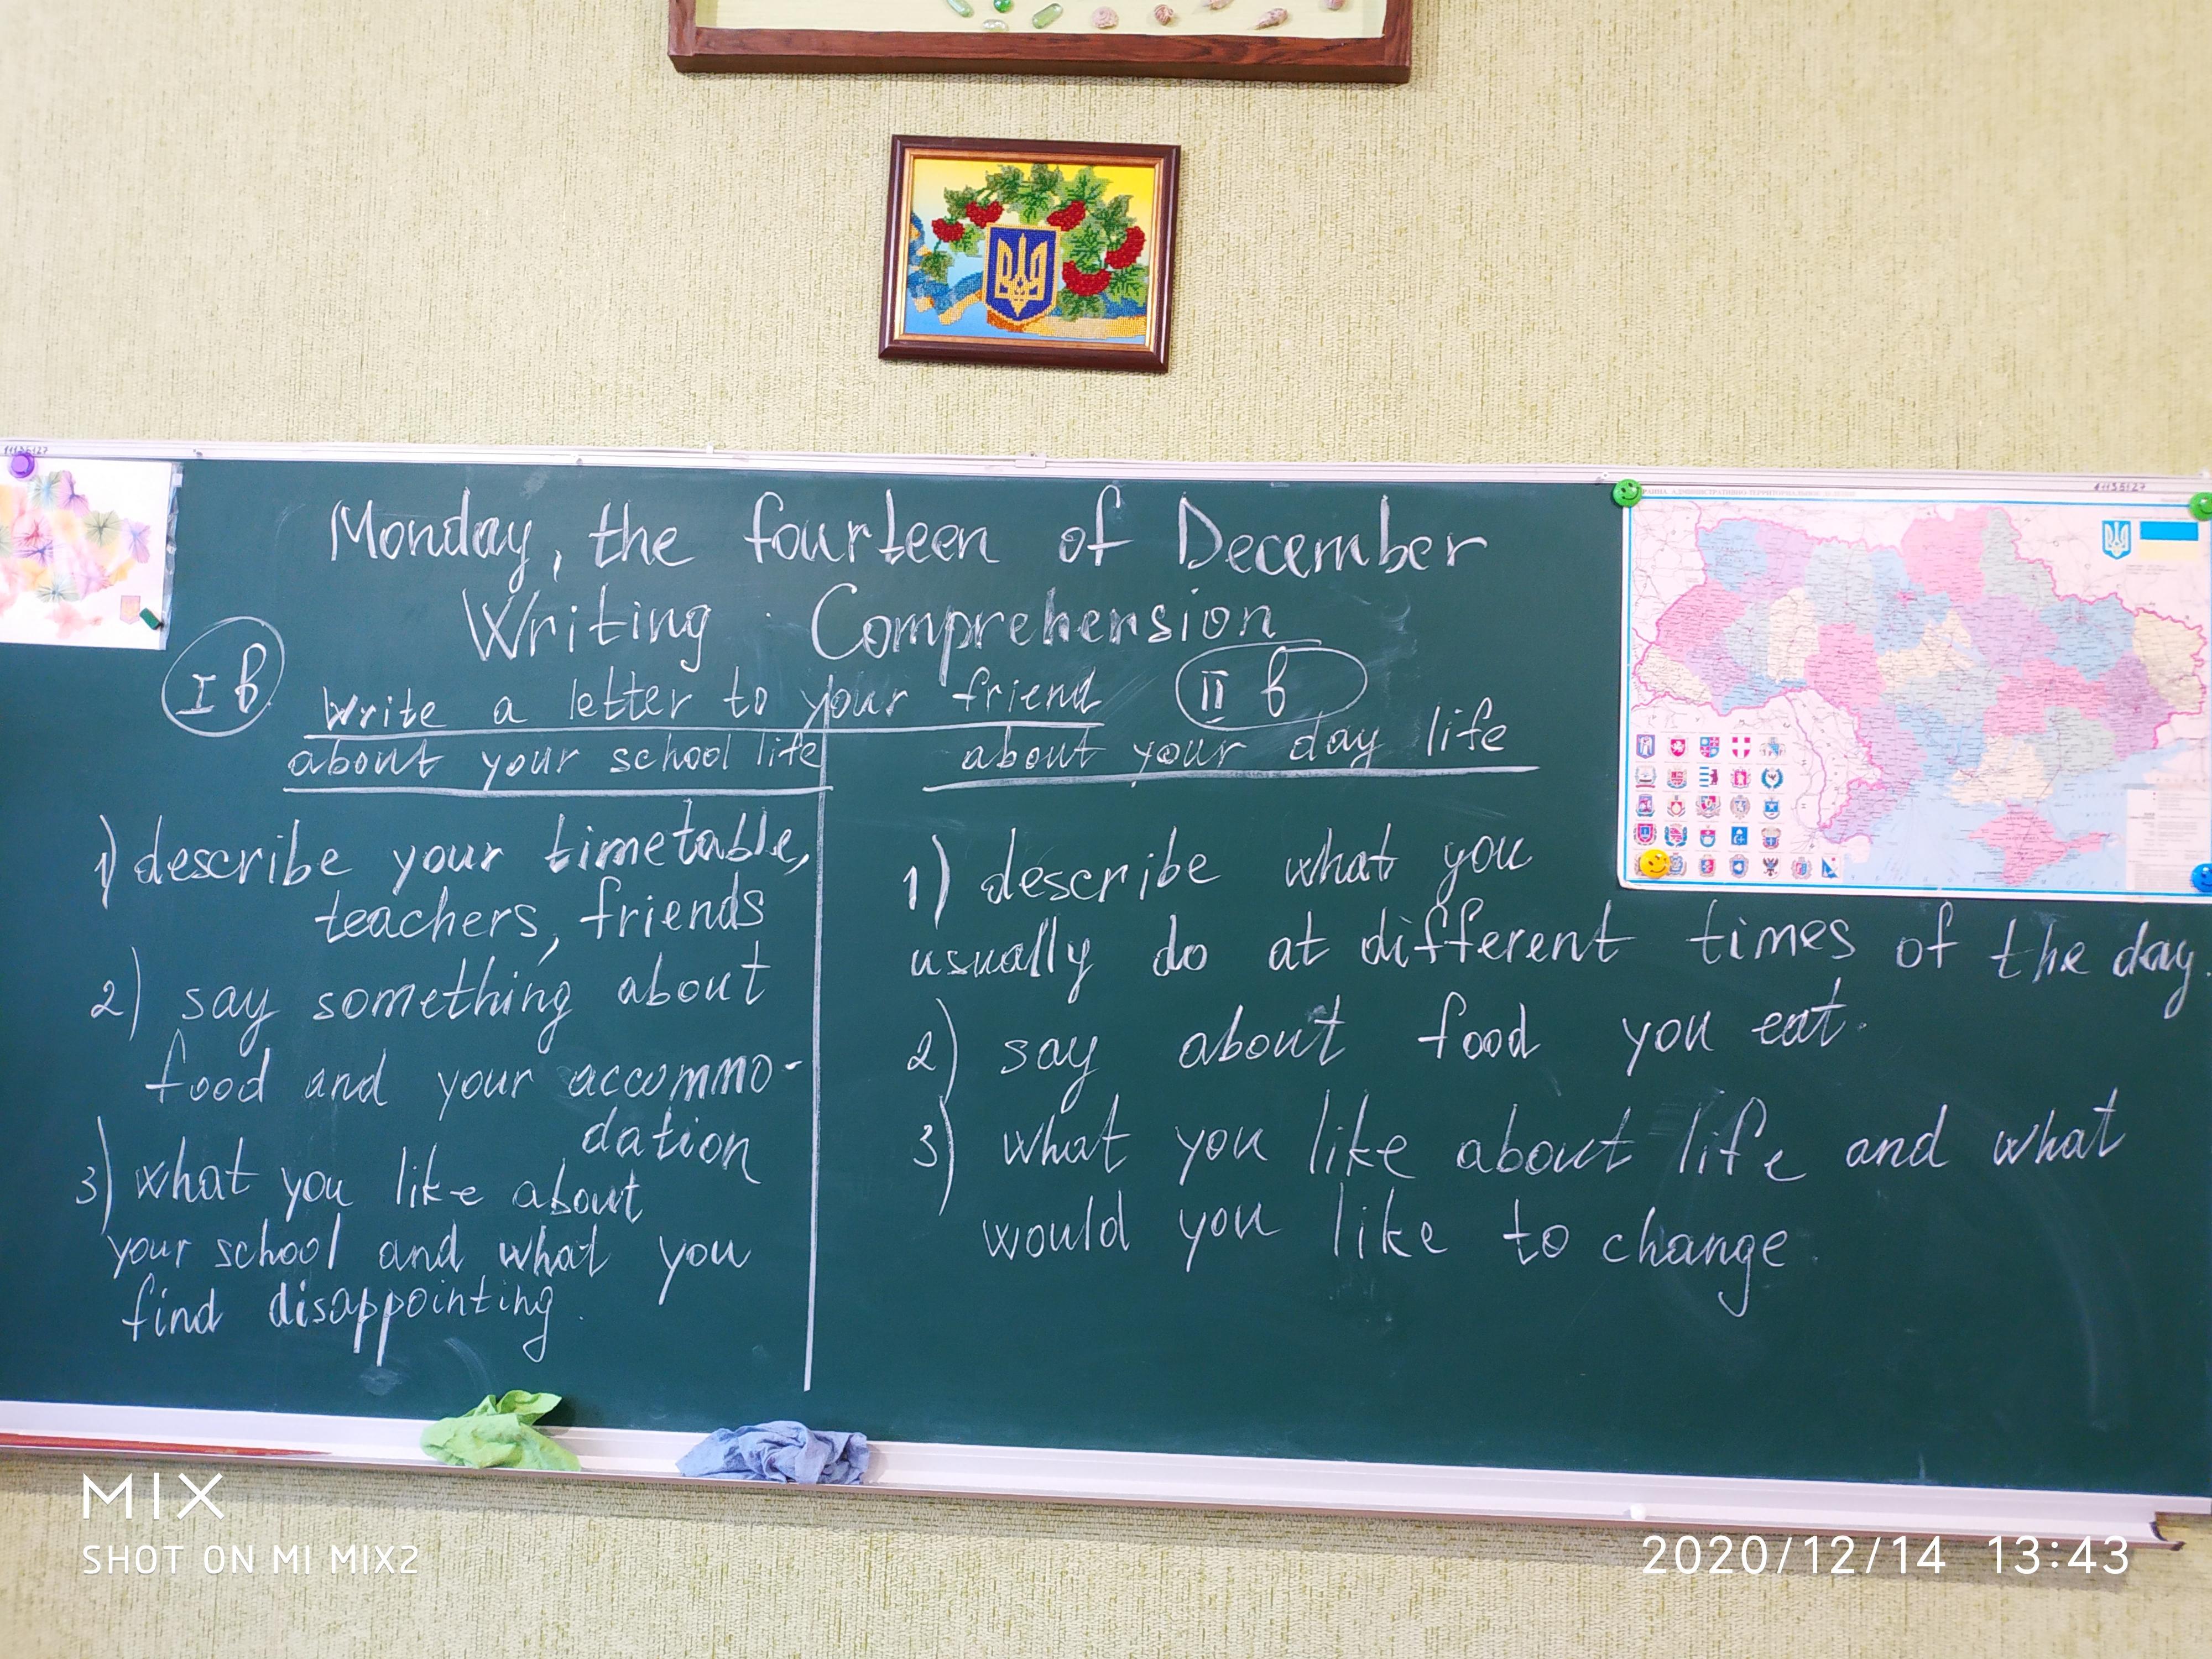 11135127
11135127
Monday, the fourteen of December
Writing Comprehension
I в
Write a letter to your friend
II в
about your school life
1) describe your timetable,
teachers, friends
2) say something about
food and your accommo-
dation
3) what you like about
your school and what you
find disappointing.
about your day life
1) describe what you
usually do at different times of the day
2) say about food you eat.
3) what you like about life and what
would you like to change
MIX
SHOT ON MI MIX2
2020/12/14 13:43